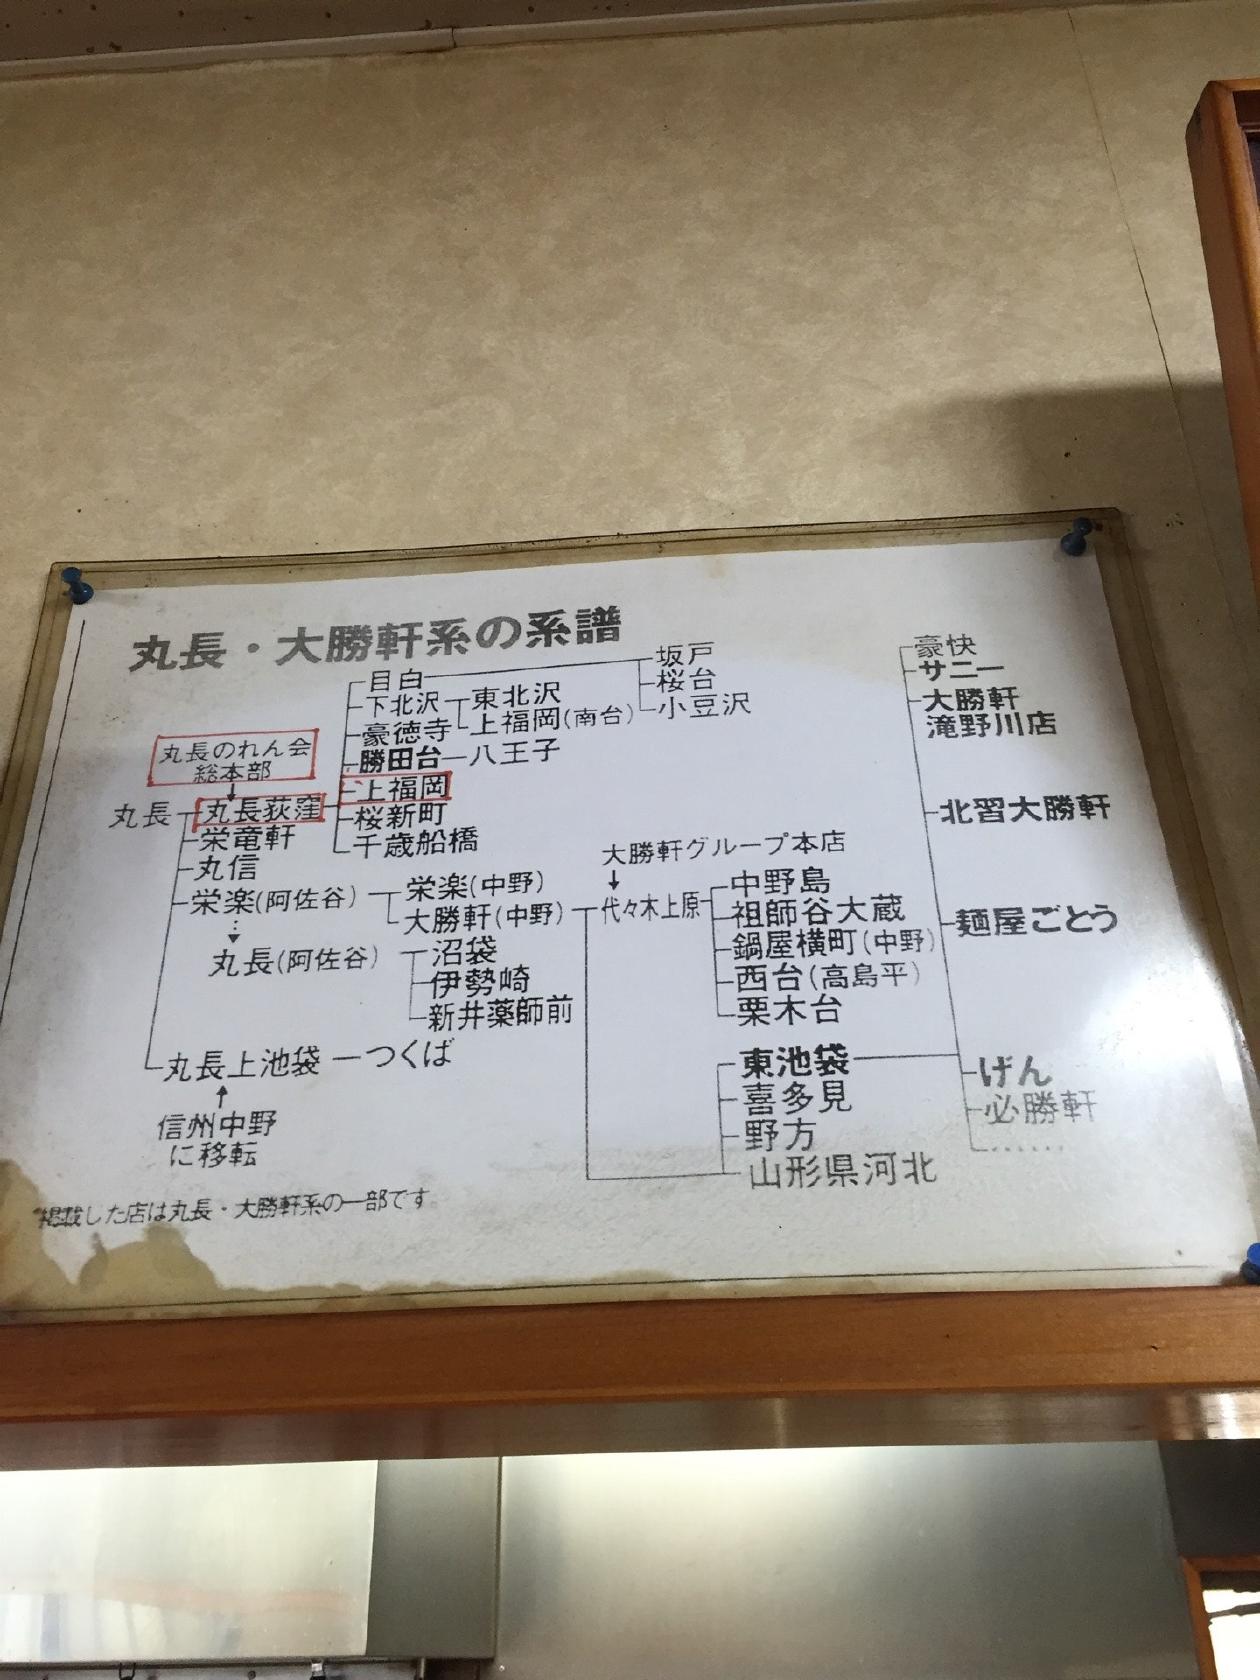 丸長・大勝軒系の系譜
目白
坂戸
桜台
小豆沢
下北沢
東北沢
上福岡(南台)
豪徳寺
勝田台
八王子
上福岡
桜新町
千歳船橋
丸長のれん会
総本部
丸長
丸長荻窪
栄竜軒
丸信
栄楽(阿佐谷)
栄楽(中野)
大勝軒(中野)
丸長(阿佐谷)
沼袋
伊勢崎
新井薬師前
丸長上池袋
つくば
信州中野
に移転
大勝軒グループ本店
代々木上原
中野島
祖師谷大蔵
鍋屋横町(中野)
西台(高島平)
栗木台
東池袋
喜多見
野方
山形県河北
豪快
サニー
大勝軒
滝野川店
北習大勝軒
麺屋ごとう
げん
必勝軒
‥‥‥
掲載した店は丸長・大勝軒系の一部です。